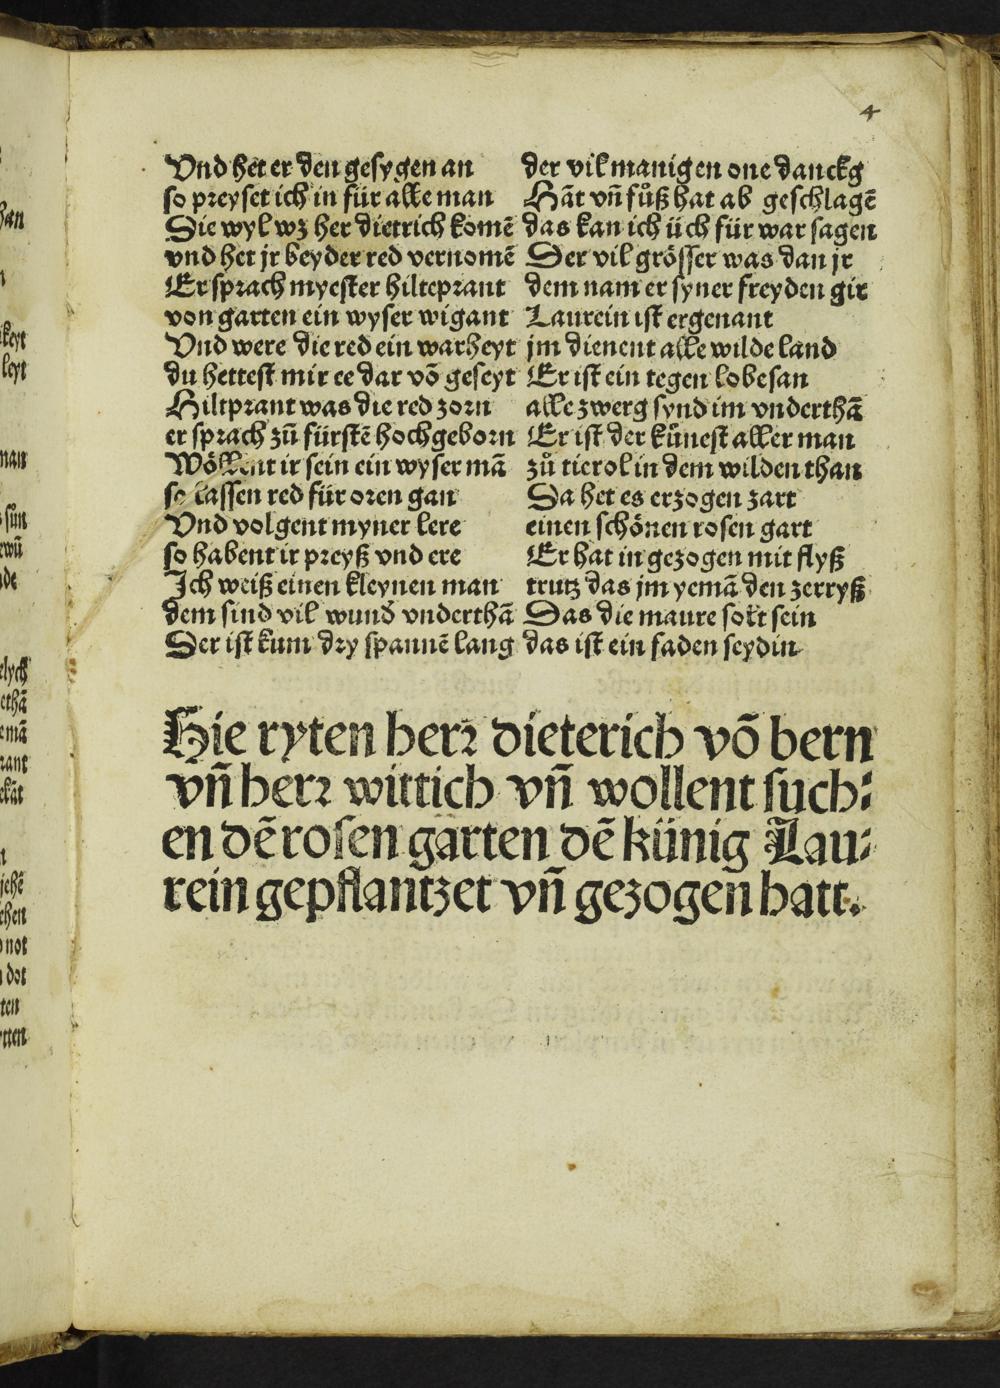 4
Vnd het er den gesygen an
so preyset ich in für alle man
Die wyl wz her dietrich komē
vnd het jr beyder red vernomē
Er sprach myester hilteprant
von garten ein wyser wigant
Vnd were die red ein warheyt
du hettest mir ee dar vō geseyt
Hiltprant was die red zorn
er sprach zů fürstē hochgeborn
Wöllent ir sein ein wyser mā
so lassen red für oren gan
Vnd volgent myner lere
so habent ir preyß vnd ere
Ich weiß einen kleynen man
dem sind vil wund vnderthā
Der ist kum dry spannē lang
der vil manigen one danckg
Hāt vn̄ fůß hat ab geschlagē
das kan ich üch für war sagen
Der vil grösser was dan jr
dem nam er syner freyden gir
Laurein ist er genant
jm dienent alle wilde land
Er ist ein tegen lobesan
alle zwerg synd im vnderthā
Er ist der künest aller man
zů tierol in dem wilden than
Da het es erzogen zart
einen schönen rosen gart
Er hat in gezogen mit flyß
trutz das jm yemā den zerryß
Das die maure solt sein
das ist ein faden seydin
Hie ryten herꝛ dieterich vō bern
vn̄ herꝛ wittich vn̄ wollent such⸗
en dē rosen garten dē künig Lau⸗
rein gepflantzet vn̄ gezogen hatt.